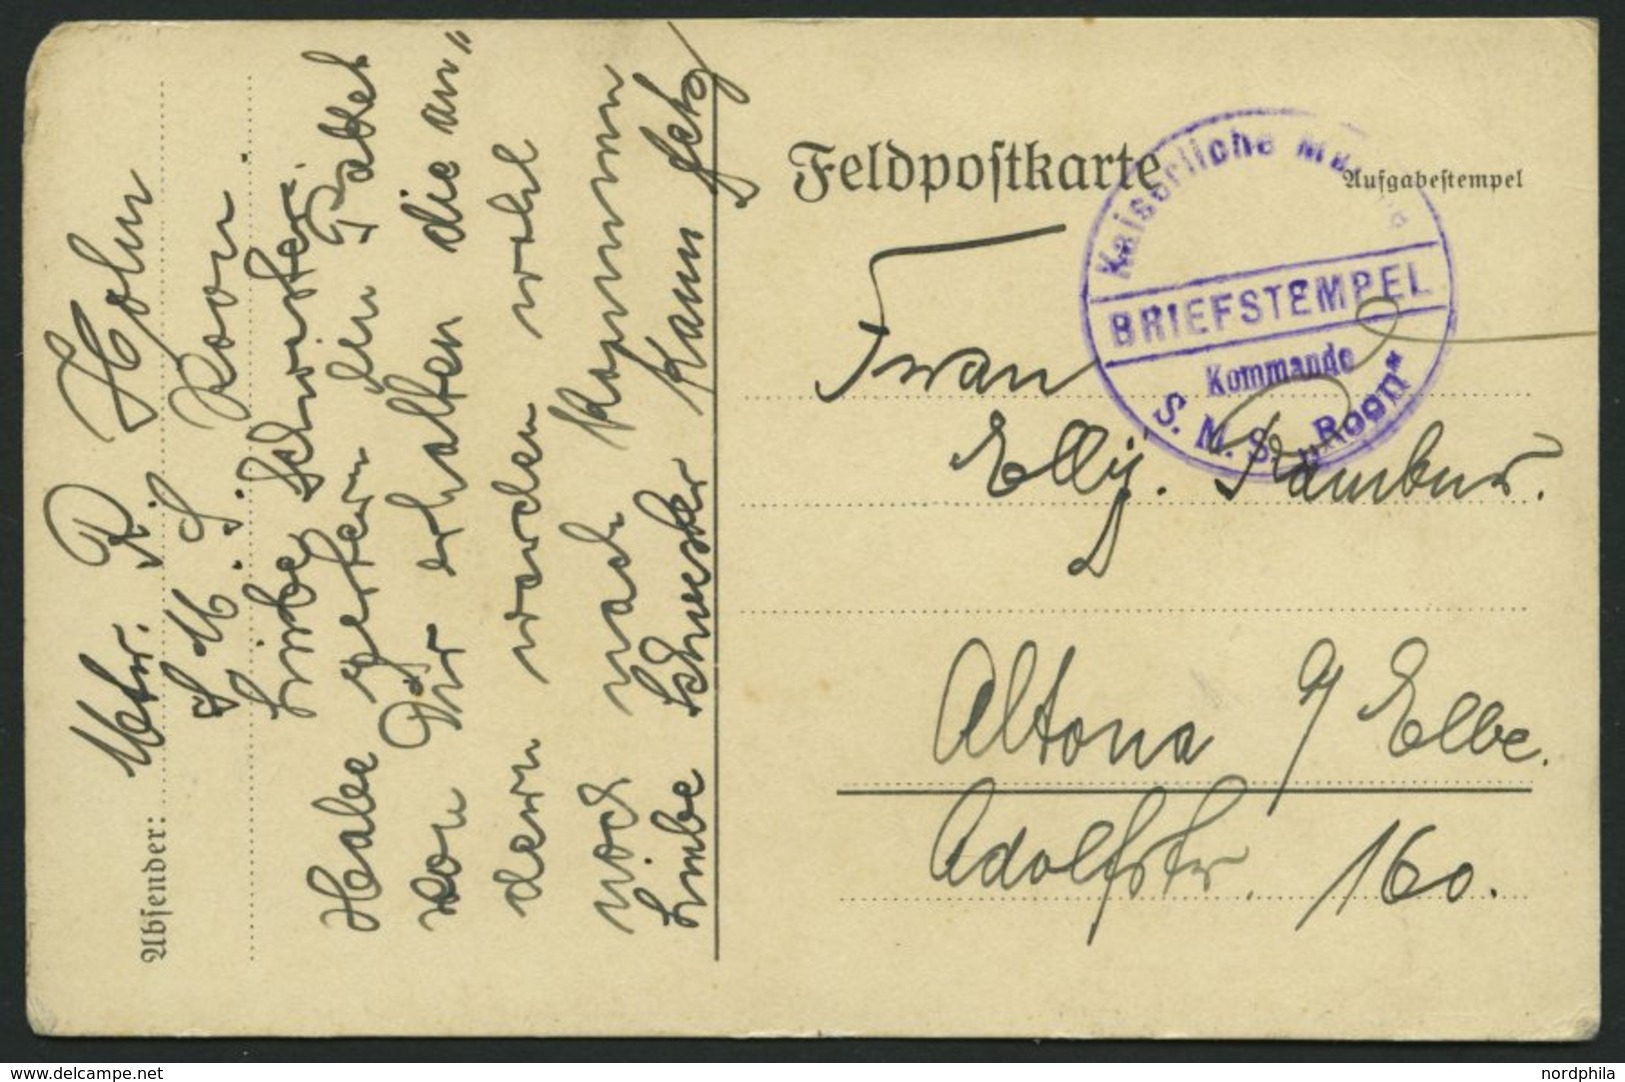 Feldpostkarte
Aufgabestempel
Kaiserliche Marine
BRIEFSTEMPEL
Kommando
S. M. S. „Roon"
Frau
Elly.
Altona a/ Elbe.
Adolfstr. 160.
Absender:
Mtr. R. Hohn
S. M. S. Roon.
Liebe Schwester.
Habe gestern ein Packet
von Dir erhalten die an"
dern werden wohl
noch nach kommen
Liebe Schwester kann jetz
www.delcampe.net
nordphila